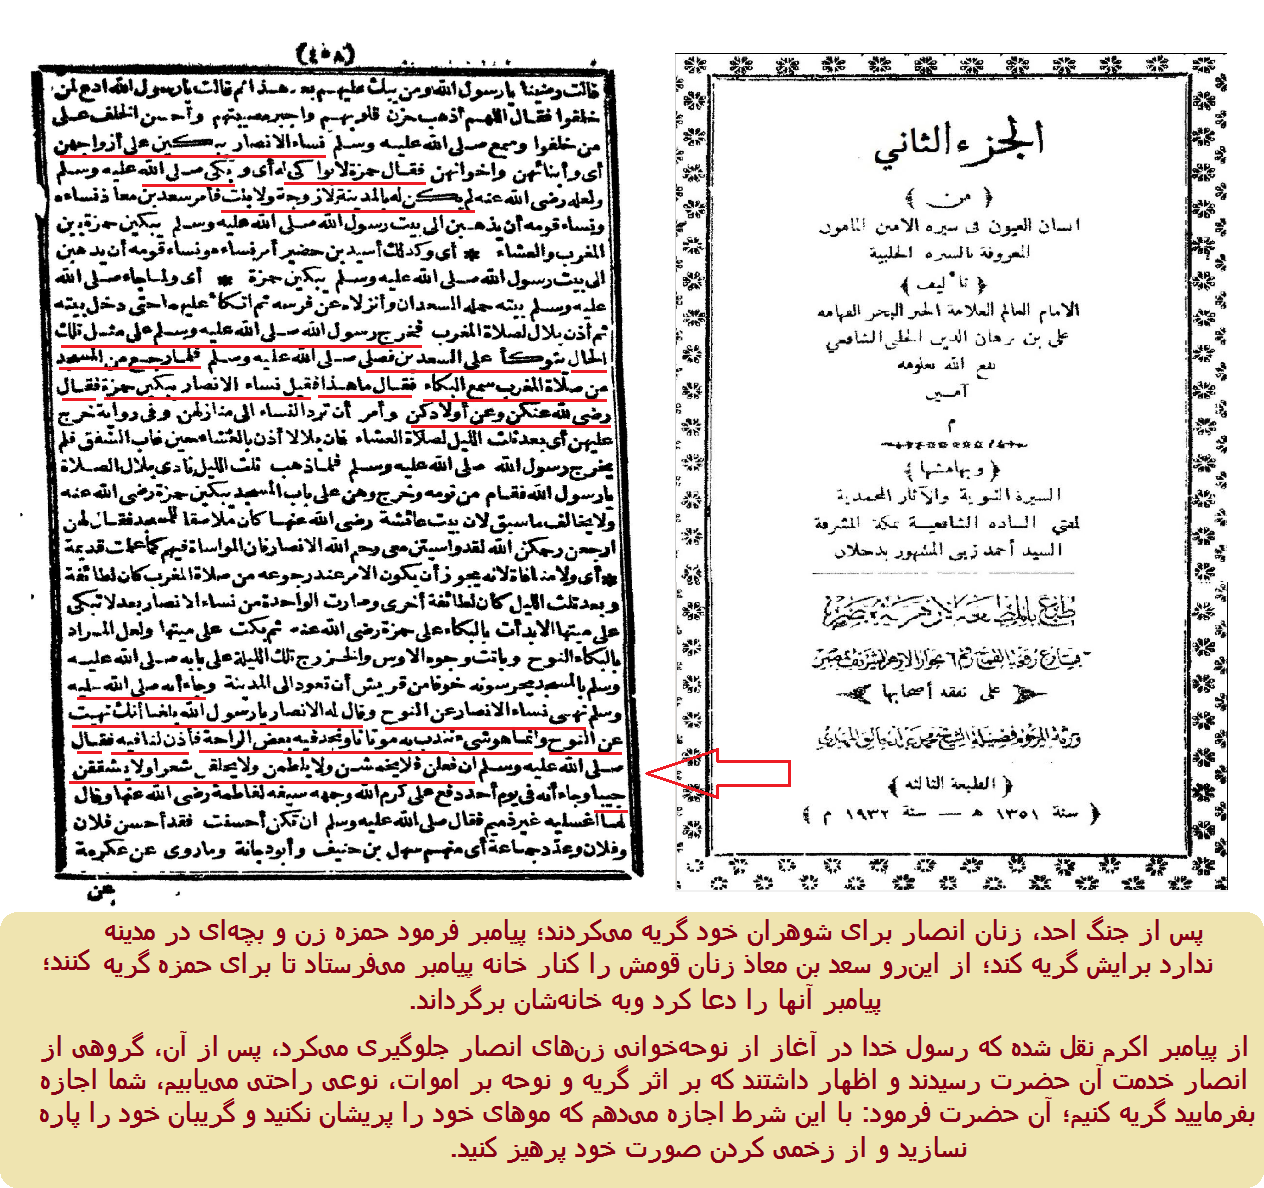 الجزء الثاني
﴿ من ﴾
انسان العيون في سيرة الامين المامون
المعروفة بالسيرة الحلبية
﴿ تأليف ﴾
الامام العالم العلامة الحبر البحر الفهامة
على بن برهان الدين الحلبي الشافعي
نفع الله بعلومه
آمـين
م
﴿ وبهامشها ﴾
السيرة النبوية والآثار المحمدية
لمفتي الساده الشافعية بمكة المشرفة
السيد أحمد زيني المشهور بدحلان
طبع بالمطبعة الازهرية بمصر
﴿ على نفقة أصحابها ﴾
﴿ الطبعة الثالثة ﴾
﴿ سنة ١٣٥١ هـ — سنة ١٩٣٢ م ﴾
(٤٠٨)
قالت رضينا يا رسول الله ومن يبكى عليهم بعد هذا ثم قالت يا رسول الله ادع لمن
خلفوا فقال اللهم أذهب حزن قلوبهم واجبر مصيبتهم وأحسن الخلف على
من خلفوا وسمع صلى الله عليه وسلم نساء الانصار يبكين على أزواجهن
أى وأبنائهن واخوانهن فقال حمزة لا بواكى له أى وبكى صلى الله عليه وسلم
ولعله رضى الله عنه لم يكن له بالمدينة لا زوجة ولا بنت فأمر سعد بن معاذ نساءه
ونساء قومه أن يذهبن الى بيت رسول الله صلى الله عليه وسلم يبكين حمزة بين
المغرب والعشاء * أى وكذلك أسيد بن حضير أمر نساءه ونساء قومه أن يذهبن
الى بيت رسول الله صلى الله عليه وسلم يبكين حمزة * أى ولما جاء صلى الله
عليه وسلم بيته حمله السعدان وأنزلاه عن فرسه ثم اتكأ عليهما حتى دخل بيته
ثم أذن بلال لصلاة المغرب فخرج رسول الله صلى الله عليه وسلم على مثل تلك
الحال يتوكأ على السعدين فصلى صلى الله عليه وسلم فلما رجع من المسجد
من صلاة المغرب سمع البكاء فقال ما هذا فقيل نساء الانصار يبكين حمزة فقال
رضى الله عنكن وعن أولادكن وأمر أن ترد النساء الى منازلهن وفى رواية خرج
عليهن أى بعد ثلث الليل لصلاة العشاء فان بلالا أذن بالعشاء حين غاب الشفق فلم
يخرج رسول الله صلى الله عليه وسلم فلما ذهب ثلث الليل نادى بلال الصلاة
يا رسول الله فقام من نومه وخرج وهن على باب المسجد يبكين حمزة رضى الله عنه
ولا يخالف ما سبق لان بيت عائشة رضى الله عنها كان ملاصقا للمسجد فقال لهن
ارجعن رحمكن الله لقد واسيتن معى رحم الله الانصار فان المواساة فيهم كما علمت قديمة
* أى ولا منافاة لانه يجوز أن يكون الامر عند رجوعه من صلاة المغرب كان لطائفة
وبعد ثلث الليل كان لطائفة أخرى وصارت الواحدة من نساء الانصار بعد لا تبكى
على ميتها الا بدأت بالبكاء على حمزة رضى الله عنه ثم بكت على ميتها ولعل المراد
بالبكاء النوح وباتت وجوه الاوس والخزرج تلك الليلة على بابه صلى الله عليه
وسلم بالمسجد يحرسونه خوفا من قريش أن تعود الى المدينة وجاء أنه صلى الله عليه
وسلم نهى نساء الانصار عن النوح وقال له الانصار يا رسول الله بلغنا أنك نهيت
عن النوح وانما هو شىء نندب به موتانا ونجد فيه بعض الراحة فأذن لنا فيه فقال
صلى الله عليه وسلم ان فعلن فلا يخمشن ولا يلطمن ولا يحلقن شعرا ولا يشققن
جيبا وجاء أنه فى يوم أحد دفع على كرم الله وجهه سيفه لفاطمة رضى الله عنها وقال
لها اغسليه غير ذميم فقال صلى الله عليه وسلم ان تكن أحسنت فقد أحسن فلان
وفلان وعدد جماعة أى منهم سهل بن حنيف وأبو دجانة وما روى عن عكرمة
عن
پس از جنگ احد، زنان انصار برای شوهران خود گریه می‌کردند؛ پیامبر فرمود حمزه زن و بچه‌ای در مدینه
ندارد برایش گریه کند؛ از این‌رو سعد بن معاذ زنان قومش را کنار خانه پیامبر می‌فرستاد تا برای حمزه گریه کنند؛
پیامبر آنها را دعا کرد وبه خانه‌شان برگرداند.
از پیامبر اکرم نقل شده که رسول خدا در آغاز از نوحه‌خوانی زن‌های انصار جلوگیری می‌کرد، پس از آن، گروهی از
انصار خدمت آن حضرت رسیدند و اظهار داشتند که بر اثر گریه و نوحه بر اموات، نوعی راحتی می‌یابیم، شما اجازه
بفرمایید گریه کنیم؛ آن حضرت فرمود: با این شرط اجازه می‌دهم که موهای خود را پریشان نکنید و گریبان خود را پاره
نسازید و از زخمی کردن صورت خود پرهیز کنید.